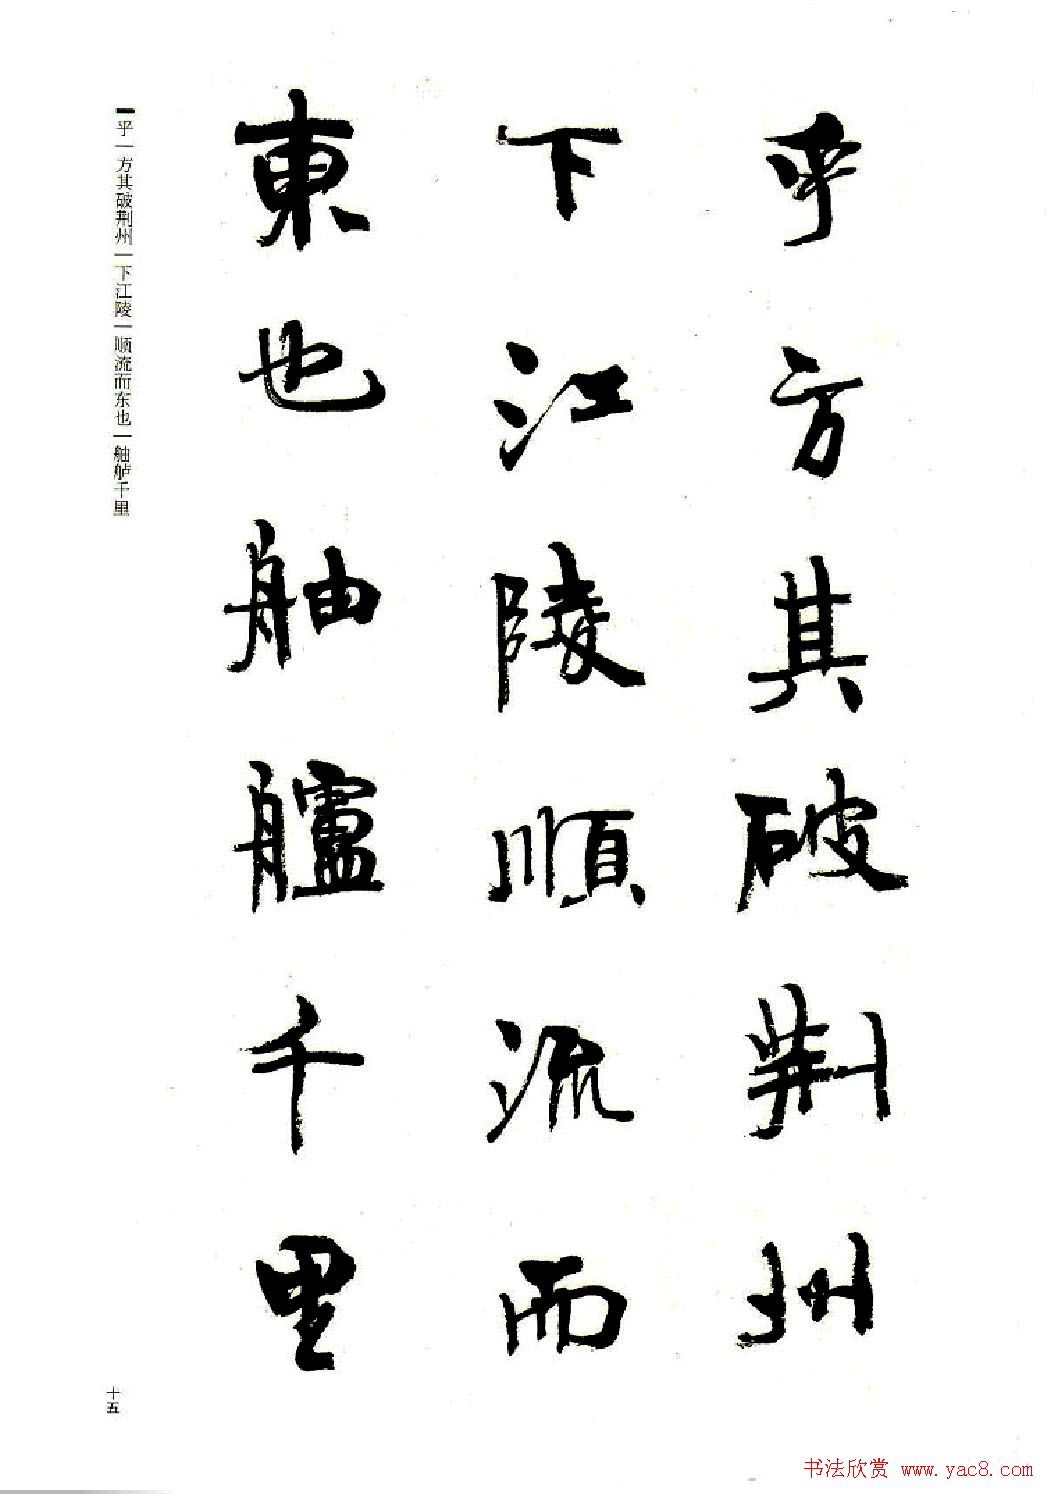 乎方其破荆州
下江陵順流而
東也舳艫千里
乎一方其破荆州一下江陵一顺流而东也一舳舻千里
十五
书法欣赏 www.yac8.com